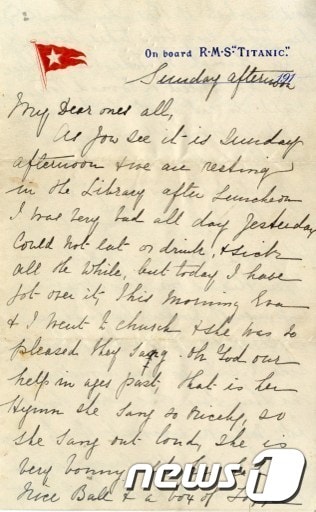 On board R·M·S "TITANIC."
Sunday afternoon 191
My Dear ones all,
As you see it is Sunday
afternoon & we are resting
in the Library after Luncheon
I was very bad all day yesterday
Could not eat or drink, & sick
all the while, but today I have
got over it, This morning Eva
& I went to church & she was so
pleased they sang Oh God our
help in ages past, that is her
Hymn she sang so nicely, so
she sang out loud, she is
very bonny,
news1
nice Ball & a box of